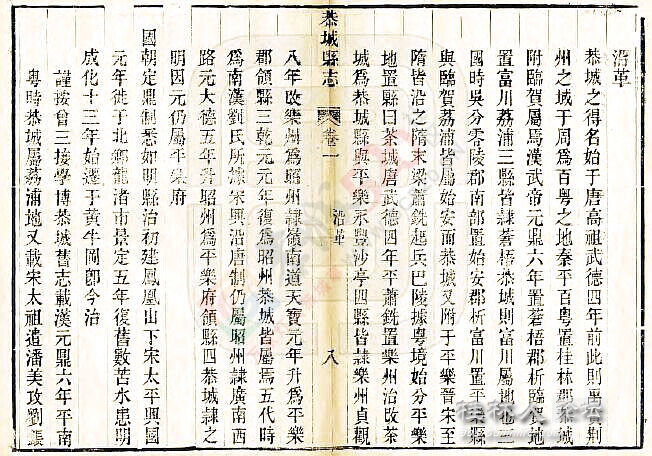 沿革
恭城之得名始于唐高祖武德四年前此則禹貢荆
州之域于周爲百粤之地秦平百粤置桂林郡恭城
附臨賀屬焉漢武帝元鼎六年置蒼梧郡析臨賀地
置富川荔浦三縣皆隸蒼梧恭城則富川屬地也三
國時吳分零陵郡南部置始安郡析富川置平樂縣
與臨賀荔浦皆屬始安而恭城又附于平樂晉宋至
隋皆沿之隋末梁蕭銑起兵巴陵據粤境始分平樂
地置縣曰茶城唐武德四年平蕭銑置樂州治改茶
城爲恭城縣與平樂永豐沙亭四縣皆隸樂州貞觀
恭城縣志
卷一
沿革
八
八年改樂州爲昭州隸嶺南道天寶元年升爲平樂
郡領縣三乾元元年復爲昭州恭城皆屬焉五代時
爲南漢劉氏所據宋興沿唐制仍屬昭州隸廣南西
路元大德五年升昭州爲平樂府領縣四恭城隸之
明因元仍屬平樂府
國朝定鼎制悉如明縣治初建鳳凰山下宋太平興國
元年徙于北鄉龍渚南景定五年復舊數苦水患明
成化十三年始遷于黃牛岡卽今治
謹按曾三接學博恭城舊志載漢元鼎六年平南
粤時恭城屬荔浦地又載宋太祖遣潘美攻劉